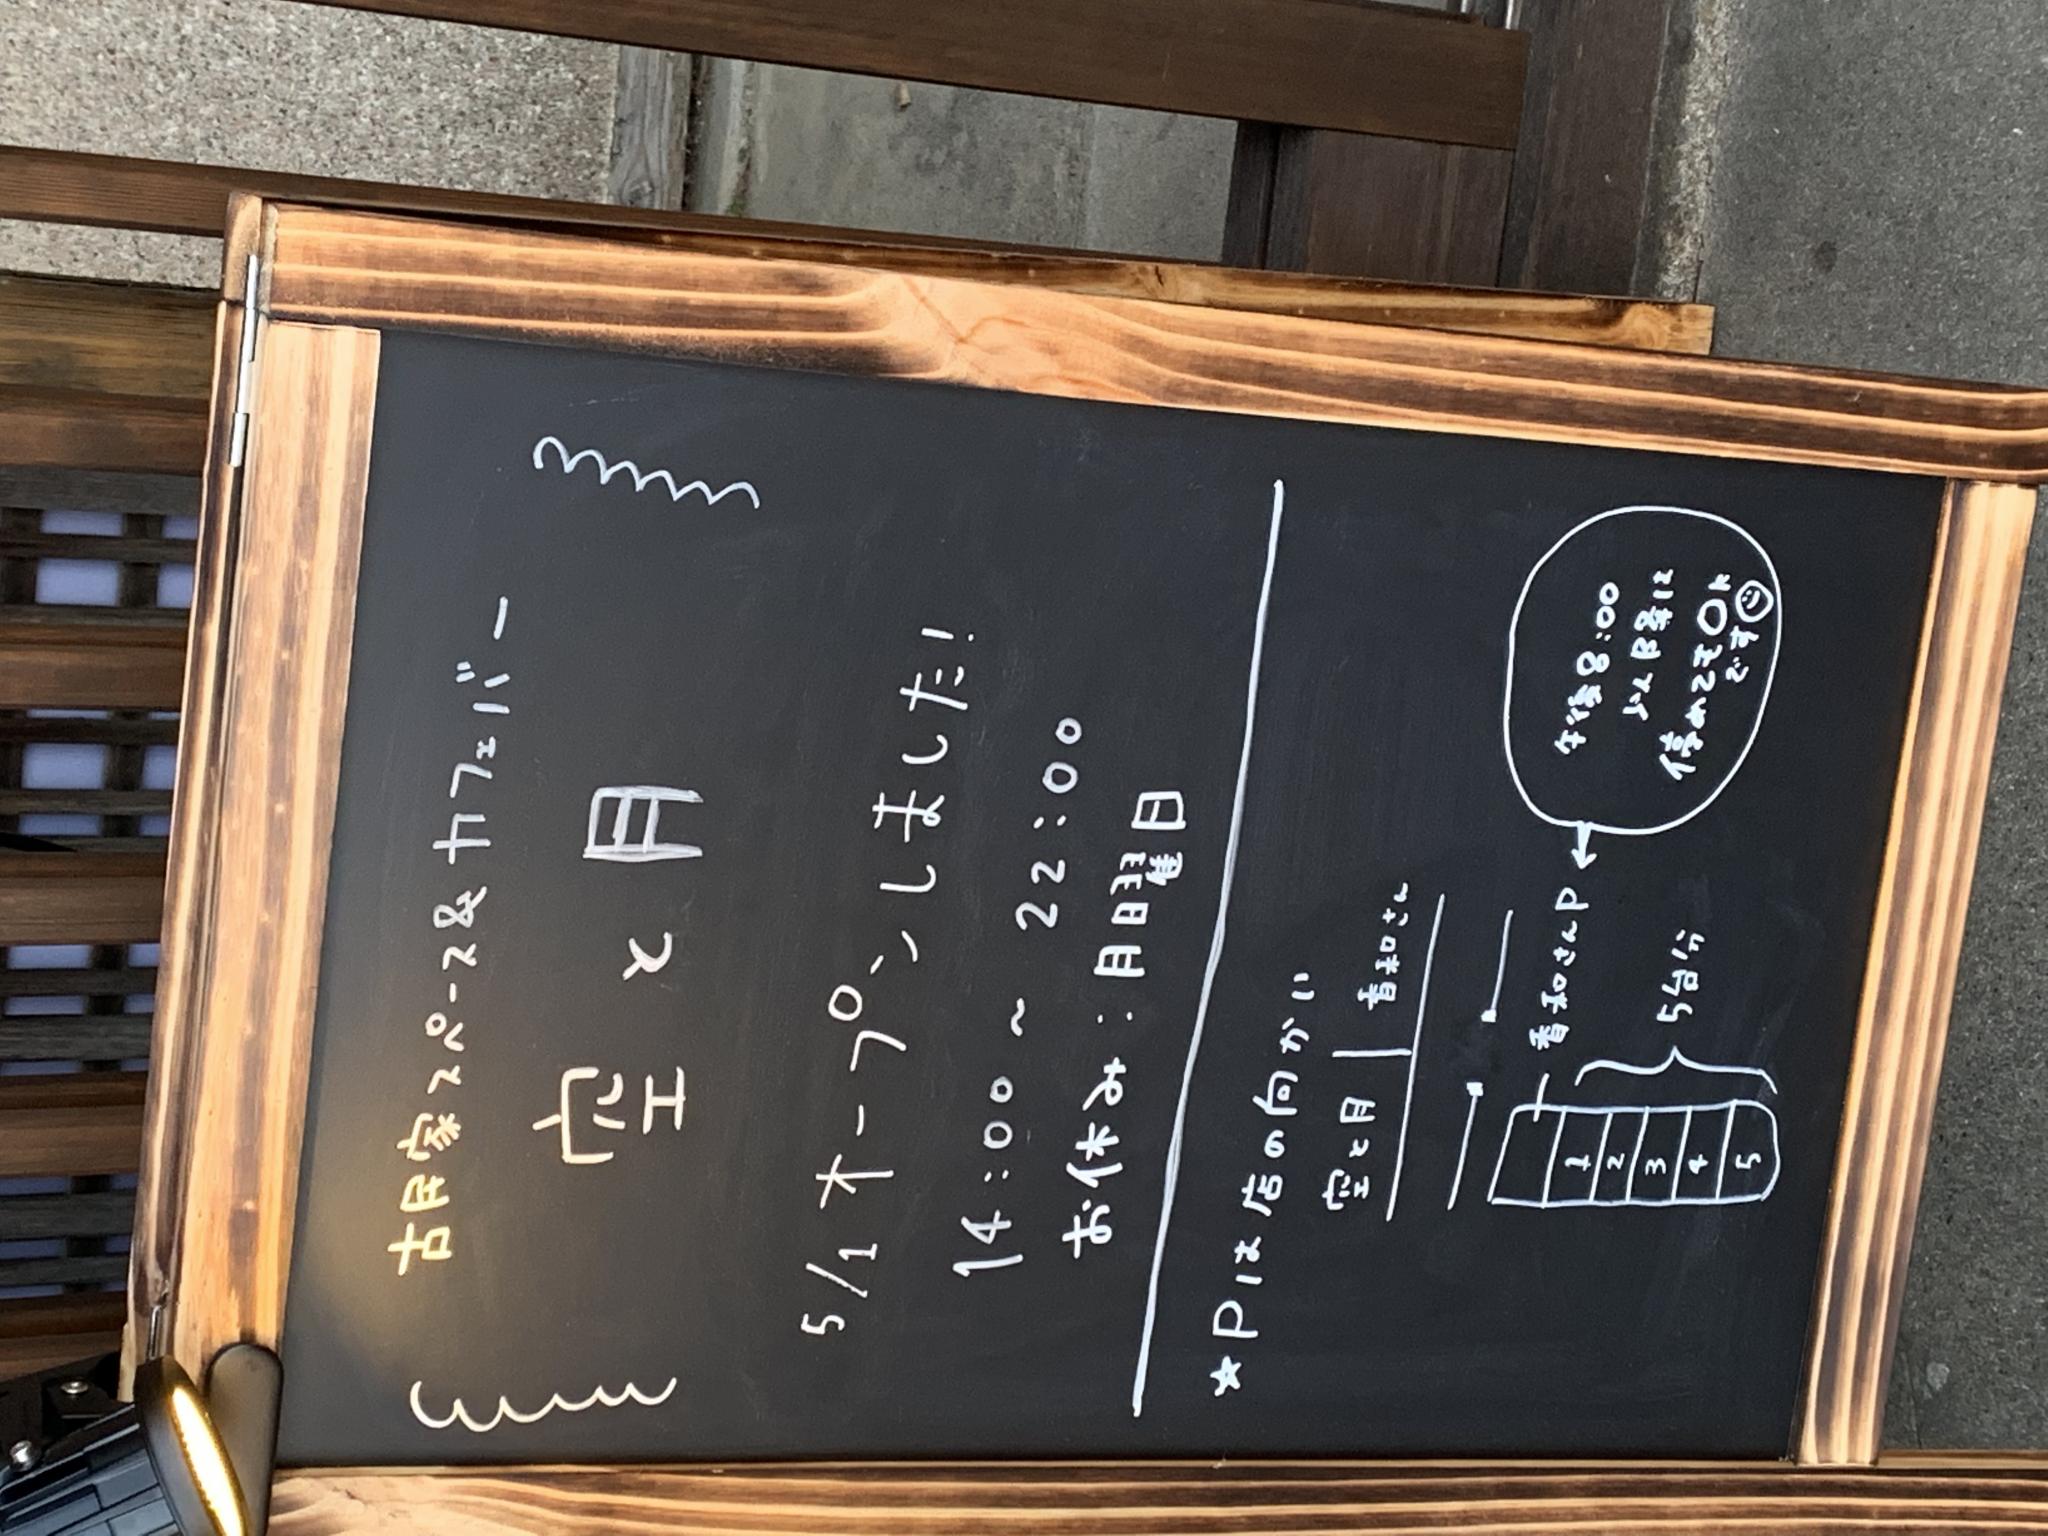 古民家スペース&カフェバー
空と月
5/1 オープンしました!
14:00 ~ 22:00
お休み:月日曜日
☆Pは店の向かい
空と月 香和さん
香和さんP
1
2
3
4
5
5台分
午後8:00
以降に
停めてもOK
です